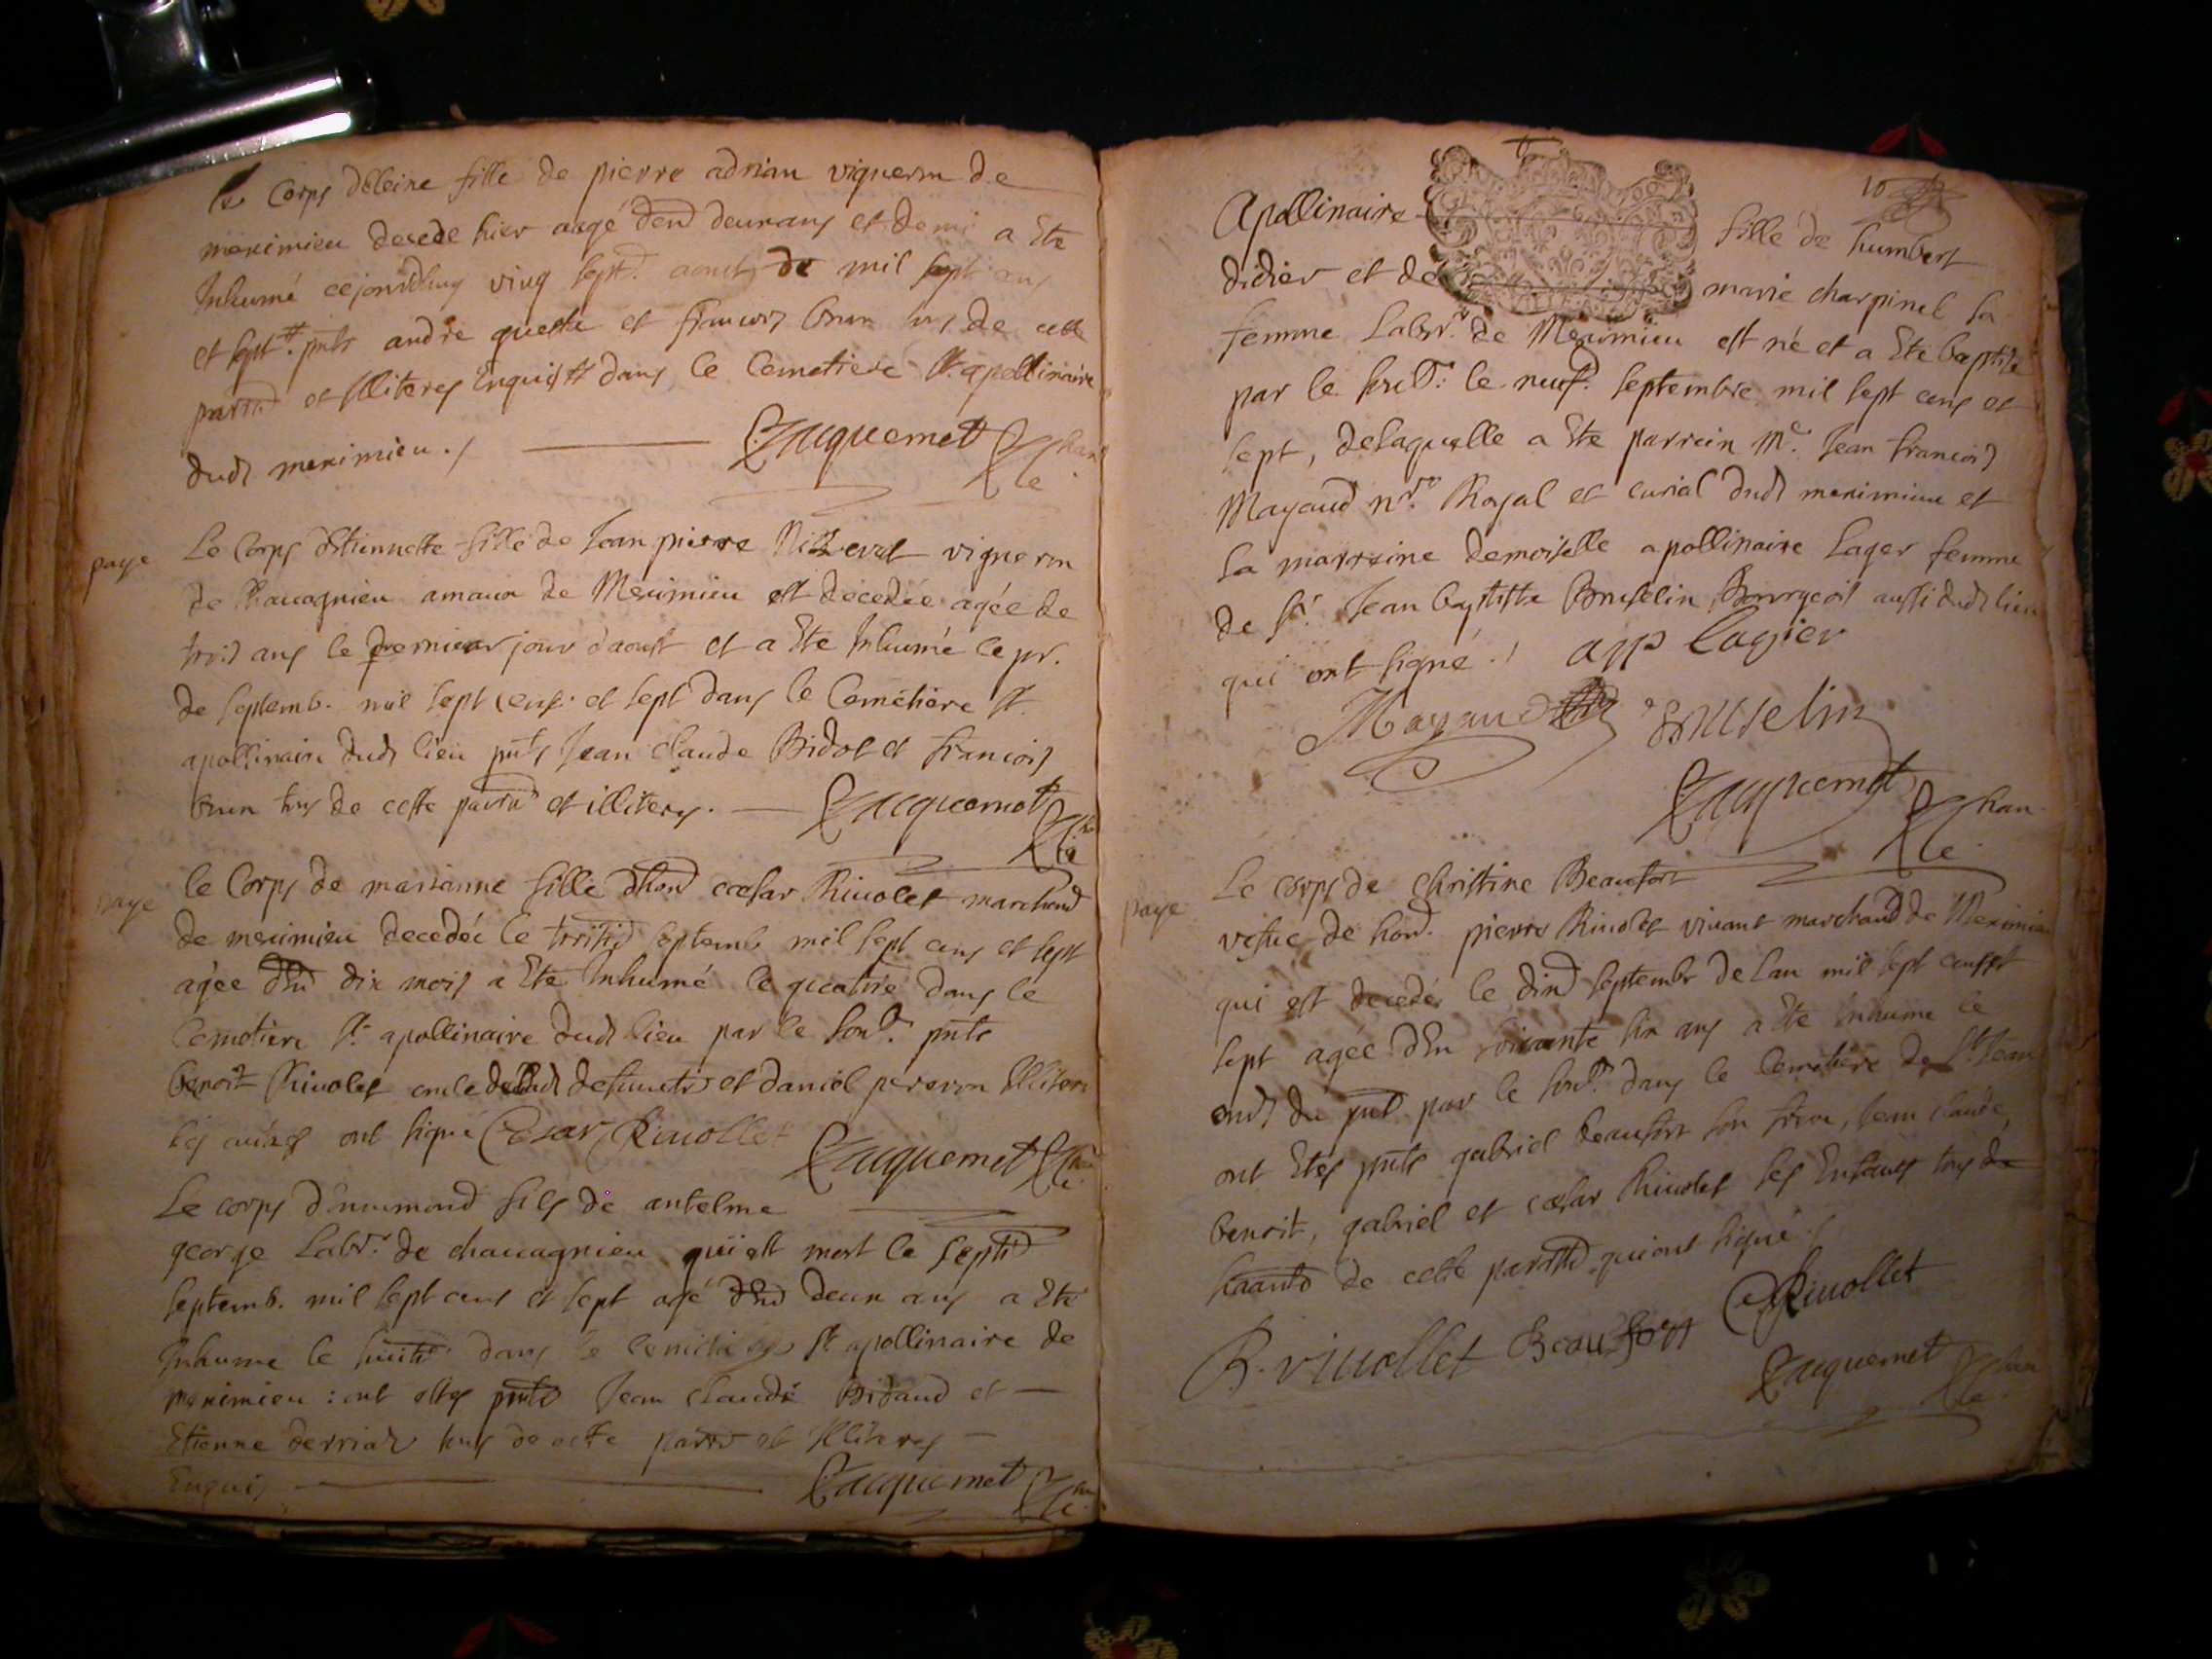 Le Corps déleine fille de pierre adrian vigneron de
meximieu decede hier aagé denv deux ans et demi a Ete
Inhumé cejourdhuy ving sept.e aoust de mil sept ans
et sept pnts andre queste et francois brun tous de cette
parre et Illiteres Enquis dans le Cemetiere St apollinaire
dud meximieu. / Jacquemet chan
paye Le Corps dEtiennette fille de Jean pierre vigneron
de Chavagnieu amaux de Meximieu est decedée agée de
trois ans le dernier jour daoust et a Ete Inhumé le pr.
de septemb. mil sept cens et sept dans le Cemetiere St
apollinaire dud lieu pnts Jean Claude Bidot et francois
brun tous de cette parre et illiteres. Jacquemet
paye le Corps de marianne fille dhon cæsar Rivolet marchand
de meximieu decedée le troisie septemb mil sept cens et sept
agée dEnv dix mois a Ete Inhumé le quatrie dans le
Cemetiere St apollinaire dud lieu par le sousé pnts
benoit Rivolet oncle de lad defuncte et daniel peveron Illitere
les autres ont signé Cesar Rivollet Jacquemet
Le corps dEnnemond fils de antelme
george Labr. de chavagnieu qui est mort le septie
septemb. mil sept cens et sept agé dEnv deux ans a Ete
Inhume le huitie dans le cemetiere St apollinaire de
meximieu : ont estes pnts Jean Claude Bidaud et
Etienne derriaz tous de cette parre et Illiteres
Enquis Jacquemet
10
Apollinaire fille de humbert
didier et de marie charpinel sa
femme Labr. de Meximieu est né et a Ete baptisé
par le sousé: le neufe septembre mil sept cens et
sept, delaquelle a Ete parrein Me. Jean francois
Mayaud nre Royal et curial dud meximieu et
la marreine demoiselle apollinaire Lager femme
de Sr. Jean baptiste Bruselin Bourgeois aussi dud lieu
qui ont signé. / app Lagier
Mayaud Bruselin
Jacquemet chan
paye Le Corps de Christine Beaufort
vefue de hon. pierre Rivolet vivant marchand de Meximieu
qui est decedée le dixe septembr de lan mil sept cens et
sept agée dEnv soixante six ans a Ete Inhume le
onze du pnt par le sousé dans le Cemetiere de St Jean
ont Etes pnts gabriel beaufort son frere, Jean claude,
benoit, gabriel et cæsar Rivolet ses Enfants tous de
de cette parre qui ont signé /
B. rivollet Beaufort C Rivollet
Jacquemet chan